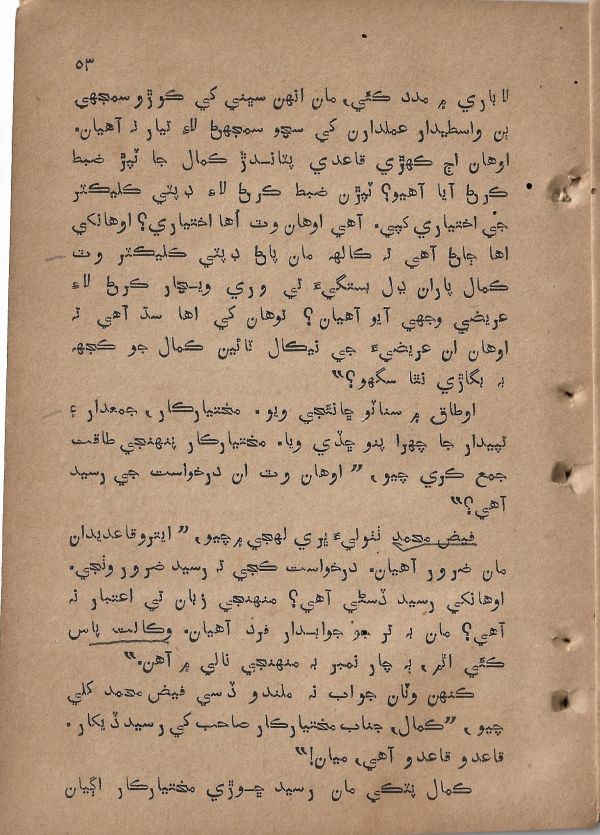 ۵۳
لاباري ۾ مدد ڪئي، مان انهن سڀني کي ڪوڙو سمجهي
ٻن واسطيدار عملدارن کي سچو سمجهڻ لاءِ تيار نہ آهيان.
اوهان اڄ ڪهڙي قاعدي پٽاندڙ ڪمال جا ٽپڙ ضبط
ڪرڻ آيا آهيو؟ ٽپڙن ضبط ڪرڻ لاءِ ڊپٽي ڪليڪٽر
جي اختياري کپي. آهي اوهان وٽ اُها اختياري؟ اوهانکي
اها ڄاڻ آهي تہ ڪالهہ مان پاڻ ڊپٽي ڪليڪٽر وٽ
ڪمال پاران ڍل بستگيءَ تي وري ويچار ڪرڻ لاءِ
عريضي وجهي آيو آهيان؟ توهان کي اها سڌ آهي تہ
اوهان ان عريضيءَ جي نيڪال تائين ڪمال جو ڪجهہ
بہ بگاڙي نٿا سگهو؟"
اوطاق ۾ سناٽو ڇانئجي ويو. مختيارڪار، جمعدار ۽
تپيدار جا چهرا پنو ڇڏي ويا. مختيارڪار پنهنجي طاقت
جمع ڪري چيو، "اوهان وٽ ان درخواست جي رسيد
آهي؟"
فيض محمد ٺٺوليءَ ڀري لهجي ۾ چيو، "ايترو قاعديدان
مان ضرور آهيان. درخواست ڪجي تہ رسيد ضرور وٺجي.
اوهانکي رسيد ڏسڻي آهي؟ منهنجي زبان تي اعتبار نہ
آهي؟ مان بہ تر جو جوابدار فرد آهيان. وڪالت پاس
ڪئي اٿم، ٻہ چار نمبر بہ منهنجي نالي ۾ آهن."
ڪنهن وٽان جواب نہ ملندو ڏسي فيض محمد کلي
چيو، "ڪمال، جناب مختيارڪار صاحب کي رسيد ڏيکار.
قاعدو قاعدو آهي، ميان!"
ڪمال پٽڪي مان رسيد ڇوڙي مختيارڪار اڳيان